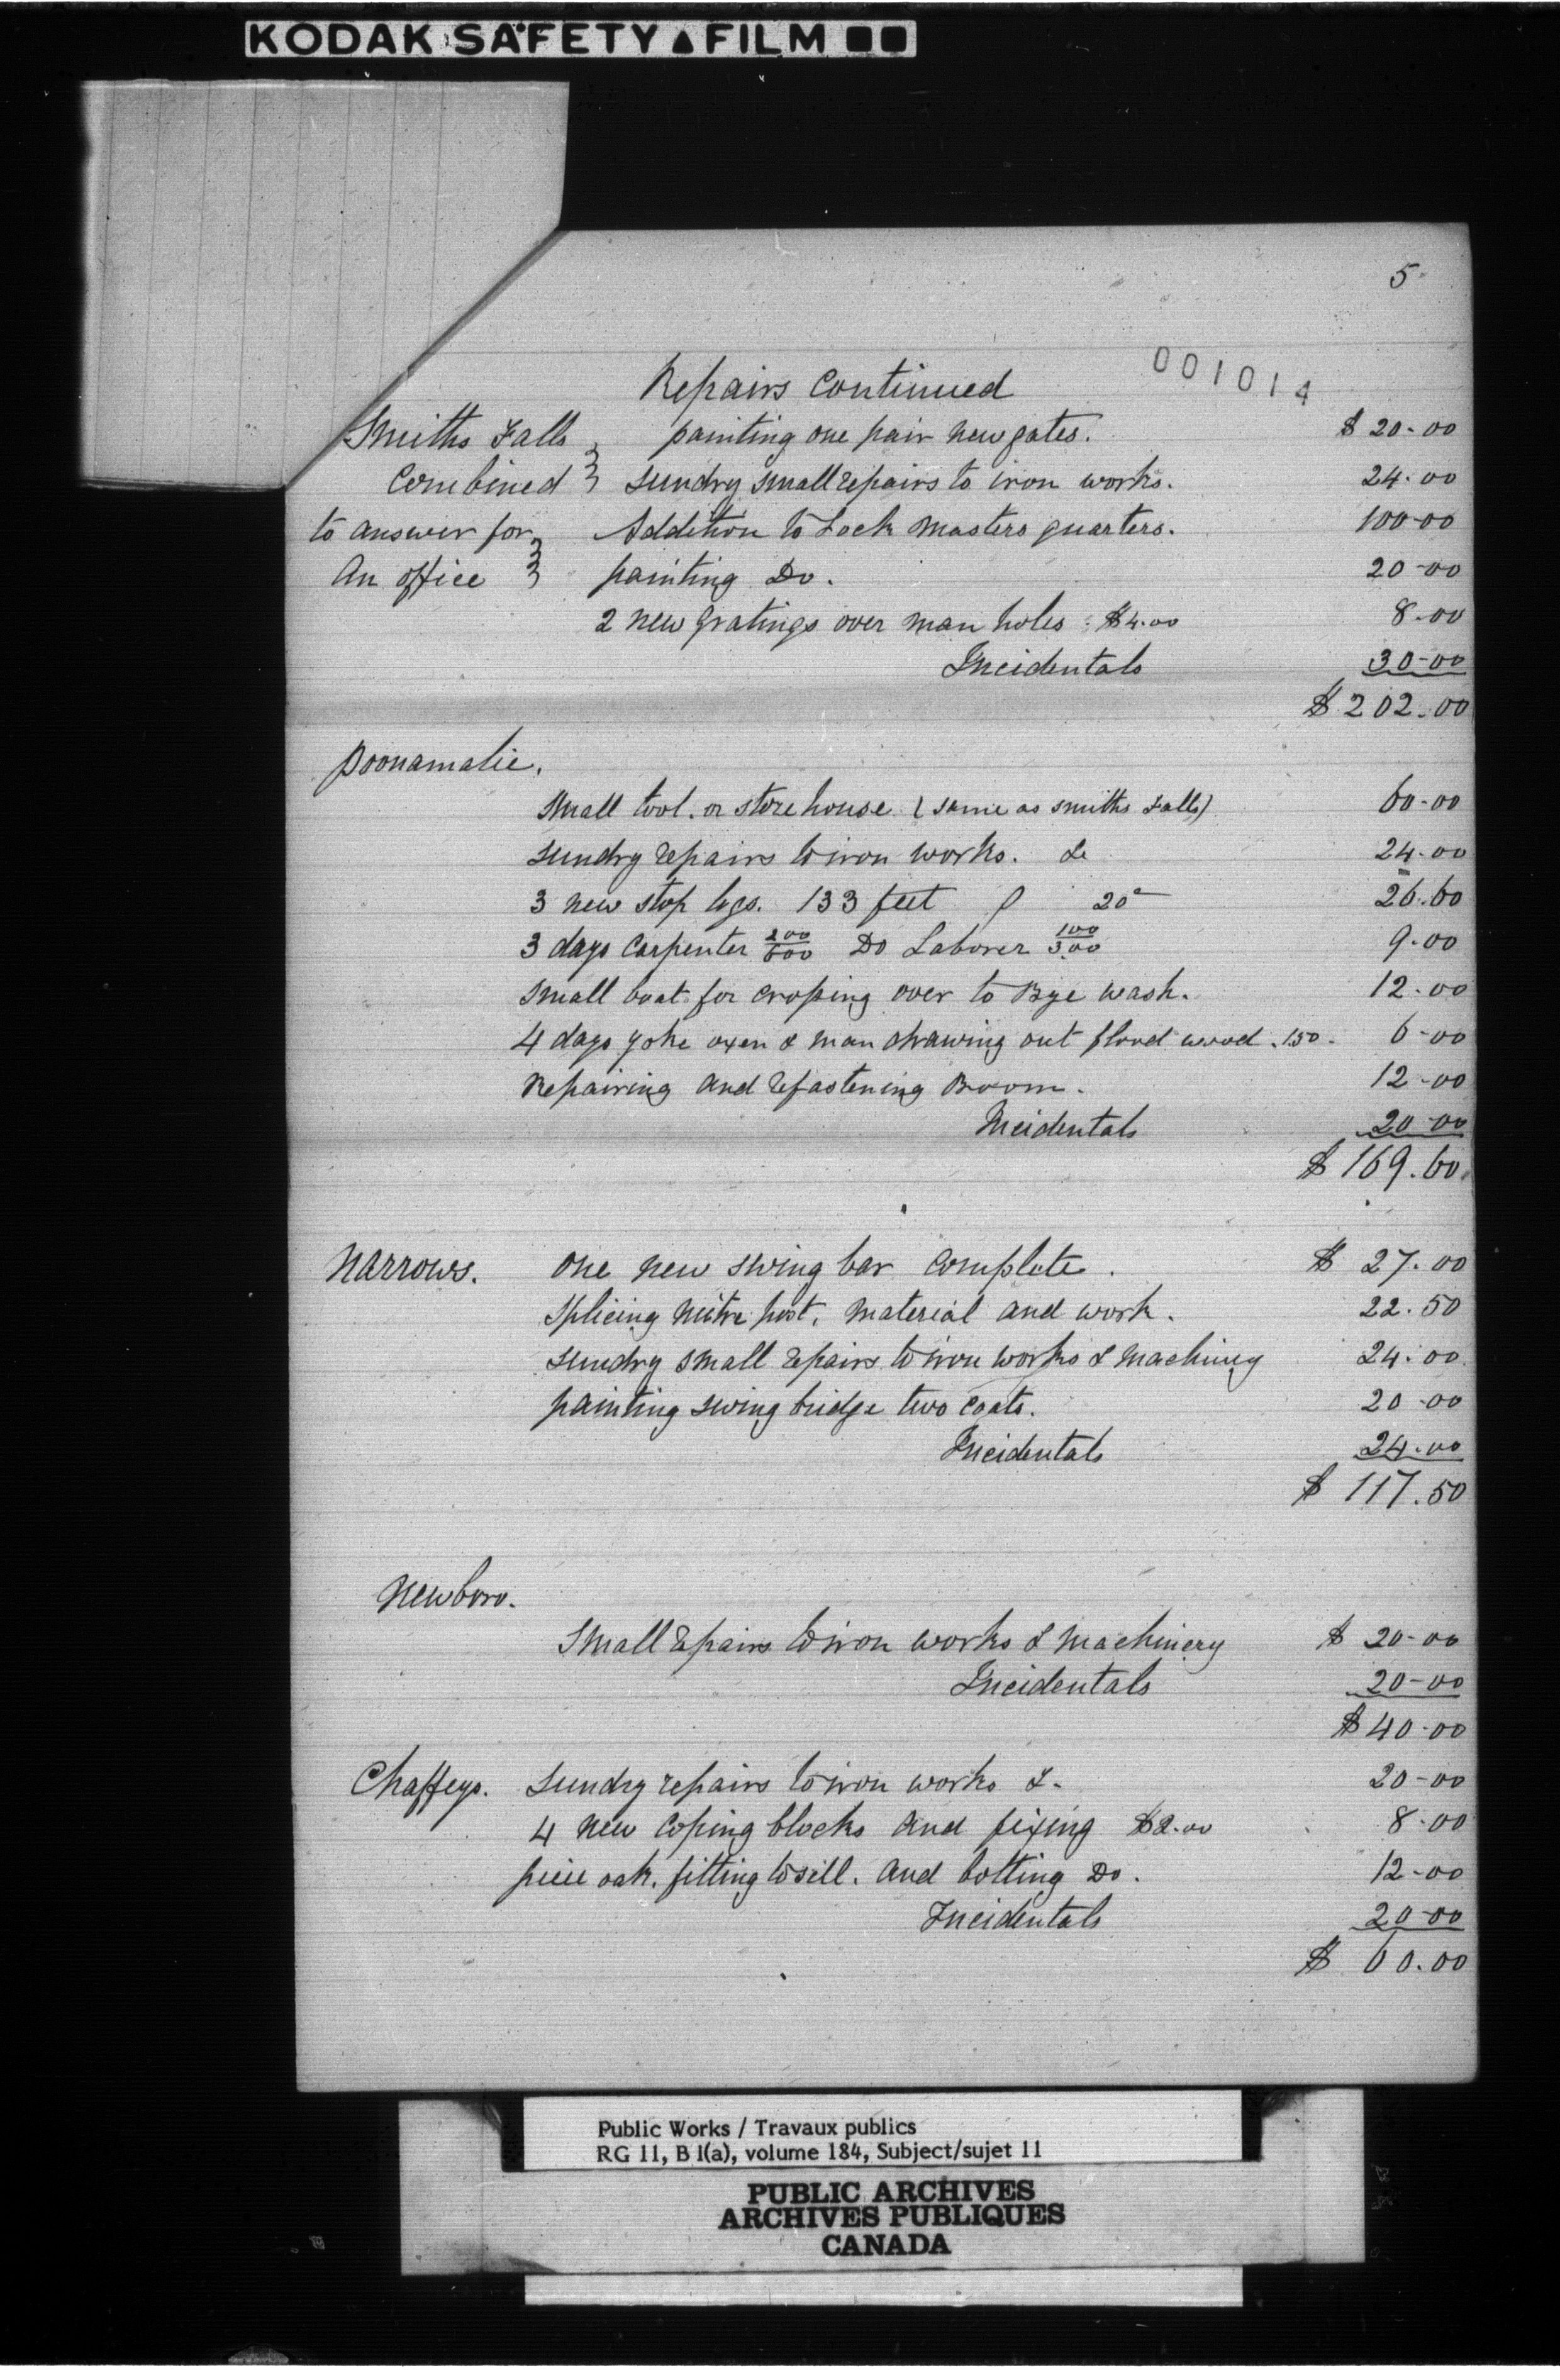 KODAK SAFETY FILM
5
001014
Repairs Continued
Smiths Falls painting one pair new gates. $ 20-00
Combined sundry small repairs to iron works. 24.00
to answer for Addition to Lock Masters quarters. 100-00
An office painting Do. 20-00
2 new gratings over man holes $4.00 8-00
Incidentals 30-00
$ 202.00
Poonamalie.
Small tool. or store house (same as smiths Falls) 60-00
sundry repairs to iron works. & 24-00
3 new stop logs. 133 feet 20 26.60
3 days Carpenter 200/600 Do Laborer 100/300 9-00
Small boat for crossing over to Bye wash. 12-00
4 days yoke oxen & man drawing out flood wood .150. 6-00
Repairing and refastening Boom. 12-00
Incidentals 20-00
$ 169.60
Narrows. One new swing bar complete. $ 27.00
Splicing mitre post, material and work. 22.50
sundry small repairs to iron works & machinery 24.00
painting swing bridge two coats. 20-00
Incidentals 24.00
$ 117.50
Newboro.
Small repairs to iron works & machinery $ 20-00
Incidentals 20-00
$ 40-00
Chaffeys. sundry repairs to iron works &. 20-00
4 new coping blocks and fixing $2.00 8-00
piece oak, fitting to sill. and bolting Do. 12-00
Incidentals 20-00
$ 60.00
Public Works / Travaux publics
RG 11, B 1(a), volume 184, Subject/sujet 11
PUBLIC ARCHIVES
ARCHIVES PUBLIQUES
CANADA